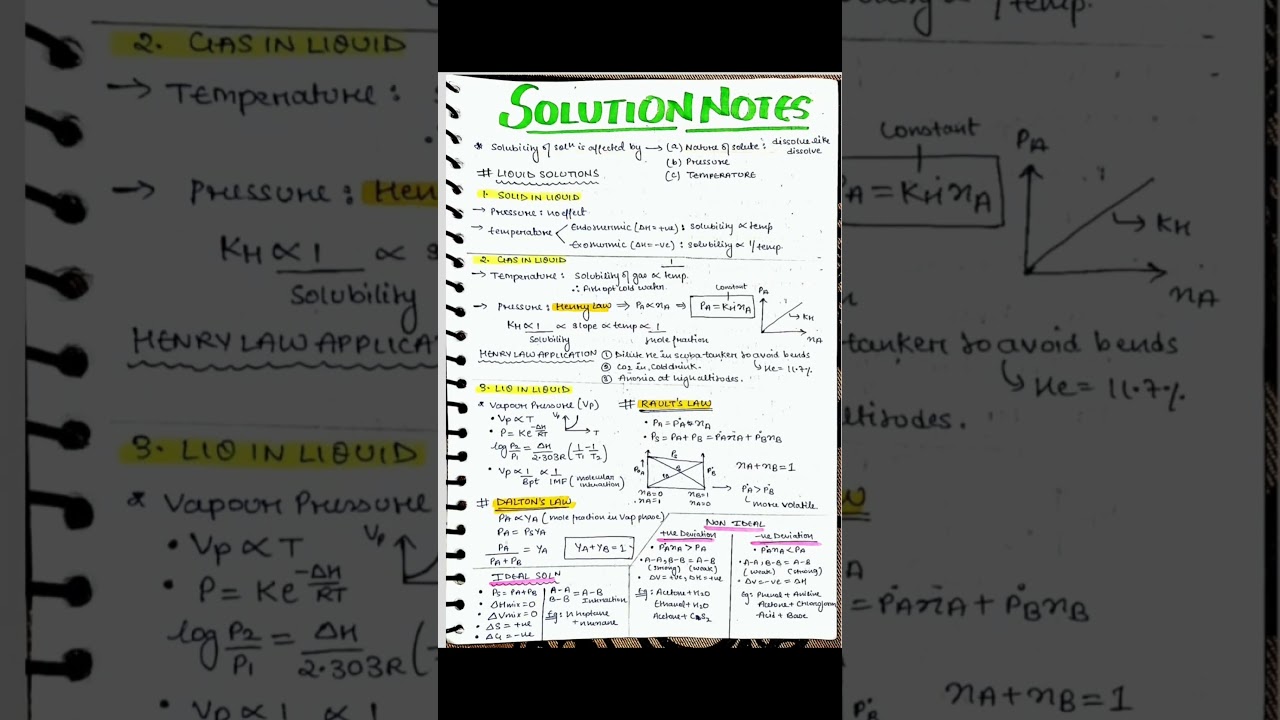 SOLUTION NOTES
* Solubility of solⁿ is affected by → (a) Nature of solute: dissolve like dissolve
(b) Pressure
(c) TEMPERATURE
# LIQUID SOLUTIONS
1. SOLID IN LIQUID
→ Pressure: no effect
→ temperature < Endothermic (ΔH=+ve): solubility ∝ temp
Exothermic (ΔH=-ve): solubility ∝ 1/temp.
2. GAS IN LIQUID
→ Temperature: Solubility of gas ∝ 1/temp.
∴ Fish opt cold water.
→ Pressure: Henry Law ⇒ PA ∝ xA ⇒ PA = KH·xA
Constant
PA
KH
xA
KH ∝ 1/Solubility ∝ slope ∝ temp ∝ 1/mole fraction
HENRY LAW APPLICATION ① Dilute He in scuba tanker to avoid bends
↳ He = 11.7%
② CO2 in cold drink.
③ Anoxia at high altitodes.
3. LIQ IN LIQUID
* Vapour Pressure (Vp)
• Vp ∝ T
Vp
T
• P = Ke^-ΔH/RT
log P2/P1 = ΔH/2.303R (1/T1 - 1/T2)
• Vp ∝ 1/Bpt ∝ 1/IMF (molecular interaction)
# RAULT'S LAW
• PA = P°A xA
• PS = PA + PB = P°A xA + P°B xB
PS
P°A
P°B
xB=0
xA=1
xB=1
xA=0
xA + xB = 1
→ P°A > P°B
↳ more volatile
# DALTON'S LAW
PA ∝ YA (mole fraction in vap phase)
PA = PS YA
PA/PA+PB = YA
YA + YB = 1
IDEAL SOLN
• PS = PA+PB
• ΔHmix = 0
• ΔVmix = 0
• ΔS = +ve
• ΔG = -ve
A-A
B-B = A-B
Interaction
Eg: n heptane
+ n hexane
NON IDEAL
+ve Deviation
• P°A xA > PA
• A-A, B-B = A-B
(strong) (weak)
• ΔV = +ve, ΔH = +ve
Eg: Acetone + H2O
Ethanol + H2O
Acetone + CS2
-ve Deviation
• P°A xA < PA
• A-A, B-B = A-B
(weak) (strong)
• ΔV = -ve = ΔH
Eg: Phenol + Aniline
Acetone + Chloroform
Acid + Base